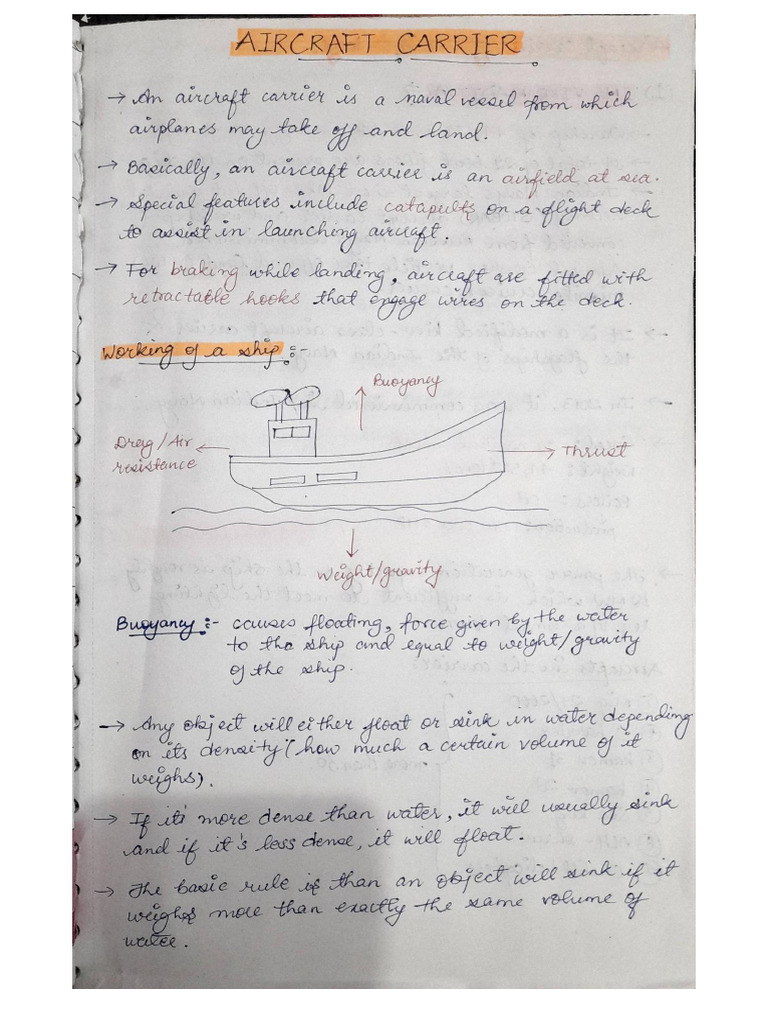 AIRCRAFT CARRIER
→ An aircraft carrier is a naval vessel from which
airplanes may take off and land.
→ Basically, an aircraft carrier is an airfield at sea.
→ Special features include catapults on a flight deck
to assist in launching aircraft.
→ For braking while landing, aircraft are fitted with
retractable hooks that engage wires on the deck.
Working of a ship :-
Buoyancy
Drag/Air
resistance
Thrust
Weight/gravity
Buoyancy :- causes floating, force given by the water
to the ship and equal to weight/gravity
of the ship.
→ Any object will either float or sink in water depending
on its density (how much a certain volume of it
weighs).
→ If it's more dense than water, it will usually sink
and if it's less dense, it will float.
→ The basic rule is than an object will sink if it
weighs more than exactly the same volume of
water.